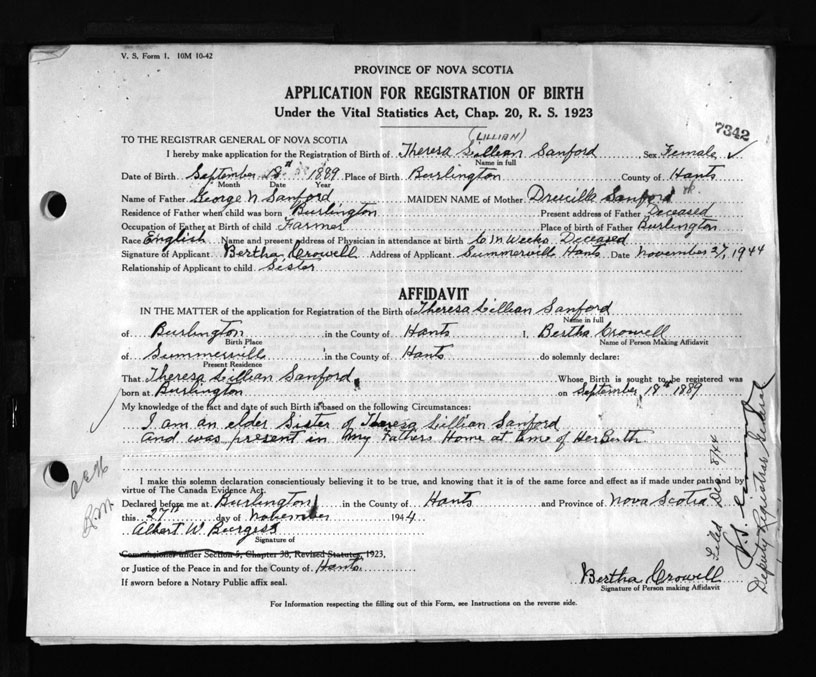 V. S. Form 1. 10M 10-42
PROVINCE OF NOVA SCOTIA
APPLICATION FOR REGISTRATION OF BIRTH
Under the Vital Statistics Act, Chap. 20, R. S. 1923
7342
(LILLIAN)
TO THE REGISTRAR GENERAL OF NOVA SCOTIA
I hereby make application for the Registration of Birth of Theresa Lillian Sanford Sex Female
Name in full
Date of Birth September 18th 1889 Place of Birth Burlington County of Hants
Month Date Year
Name of Father George N Sanford MAIDEN NAME of Mother Drucilla Sanford
Residence of Father when child was born Burlington Present address of Father Deceased
Occupation of Father at Birth of child Farmer Place of birth of Father Burlington
Race English Name and present address of Physician in attendance at birth C M Weeks Deceased
Signature of Applicant Bertha Crowell Address of Applicant Summerville Hants Date November 27, 1944
Relationship of Applicant to child Sister
AFFIDAVIT
IN THE MATTER of the application for Registration of the Birth of Theresa Lillian Sanford
Name in full
of Burlington in the County of Hants I, Bertha Crowell
Birth Place Name of Person Making Affidavit
of Summerville in the County of Hants do solemnly declare:
Present Residence
That Theresa Lillian Sanford Whose Birth is sought to be registered was
born at Burlington on September 18th 1889
My knowledge of the fact and date of such Birth is based on the following Circumstances:
I am an elder Sister of Theresa Lillian Sanford
and was present in My Fathers Home at time of Her Birth
I make this solemn declaration conscientiously believing it to be true, and knowing that it is of the same force and effect as if made under oath and by
virtue of The Canada Evidence Act.
Declared before me at Burlington in the County of Hants and Province of Nova Scotia
this 27th day of November 1944
Albert W Burgess
Signature of
Commissioner under Section 5, Chapter 38, Revised Statutes, 1923,
or Justice of the Peace in and for the County of Hants
If sworn before a Notary Public affix seal.
Bertha Crowell
Signature of Person making Affidavit
For Information respecting the filling out of this Form, see Instructions on the reverse side.
Filed Dec. 8/44
Deputy Registrar General